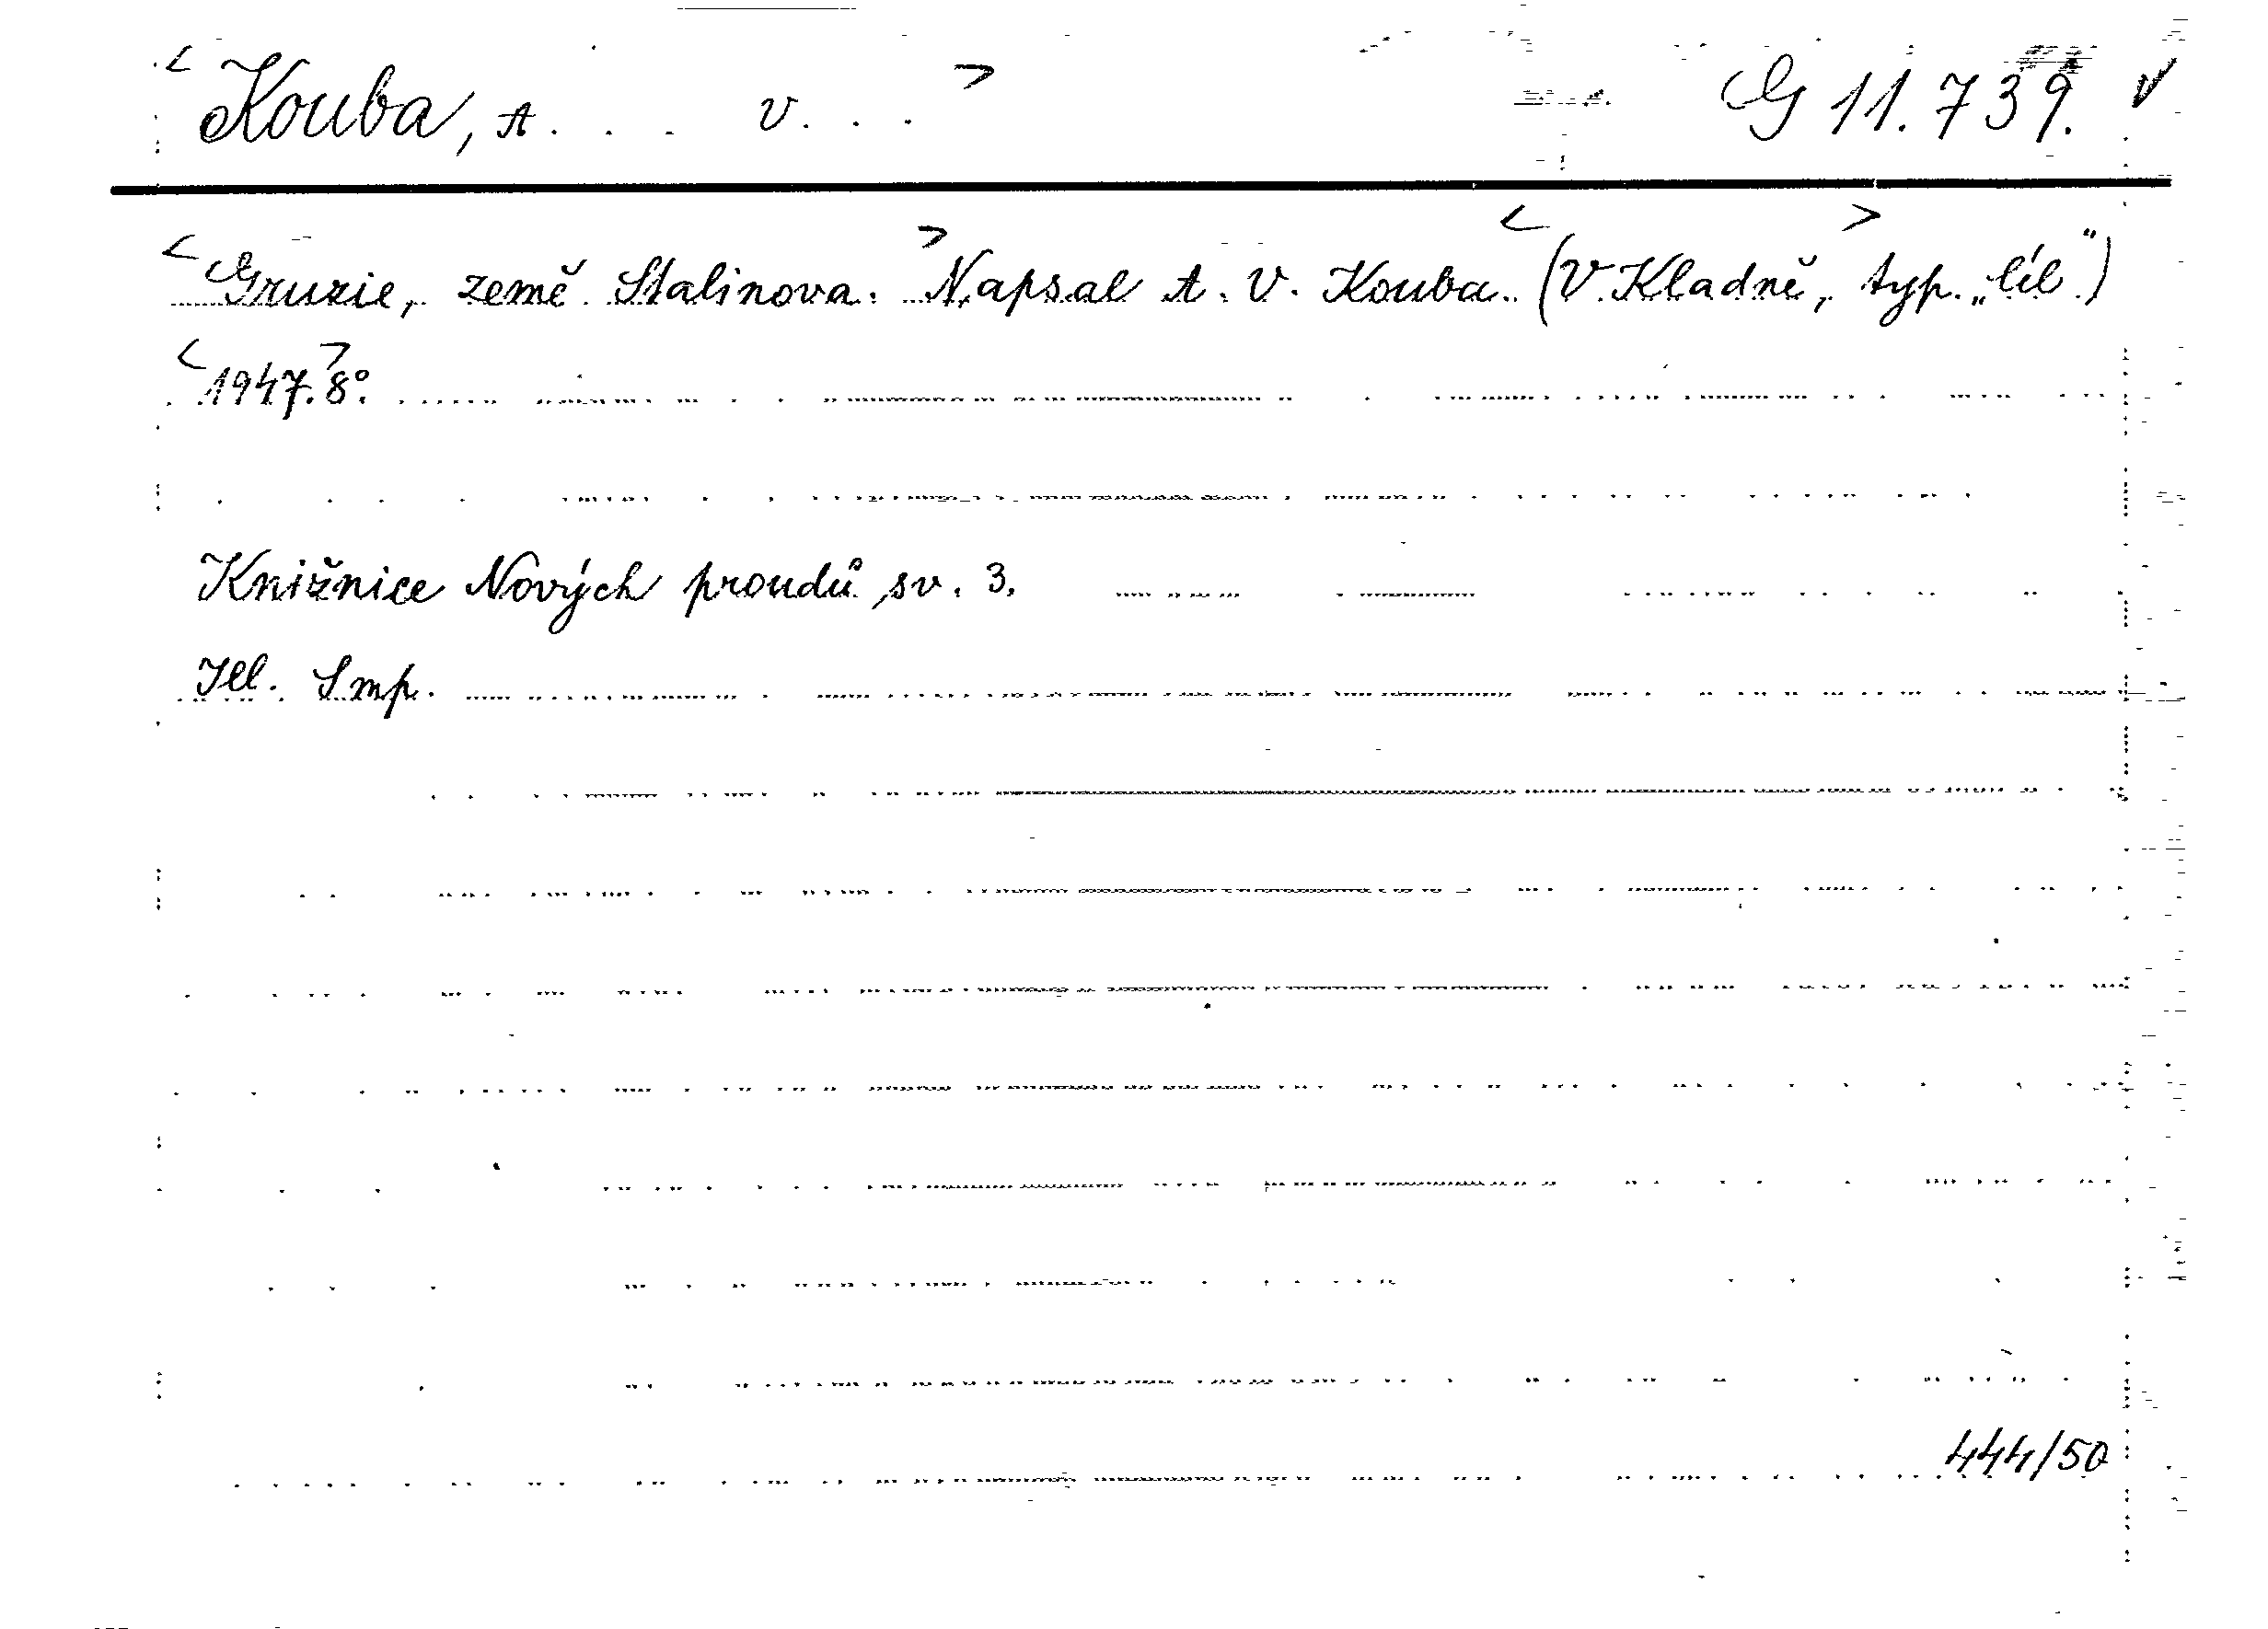 < Kouba, A. . . V. . . > G 11.739. ✓
< Gruzie, země Stalinova. > Napsal A. V. Kouba. < (V Kladně, > typ. „Cíl“)
< 1947. > 8°.
Knižnice Nových proudů, sv. 3.
Ill. Smp.
444/50